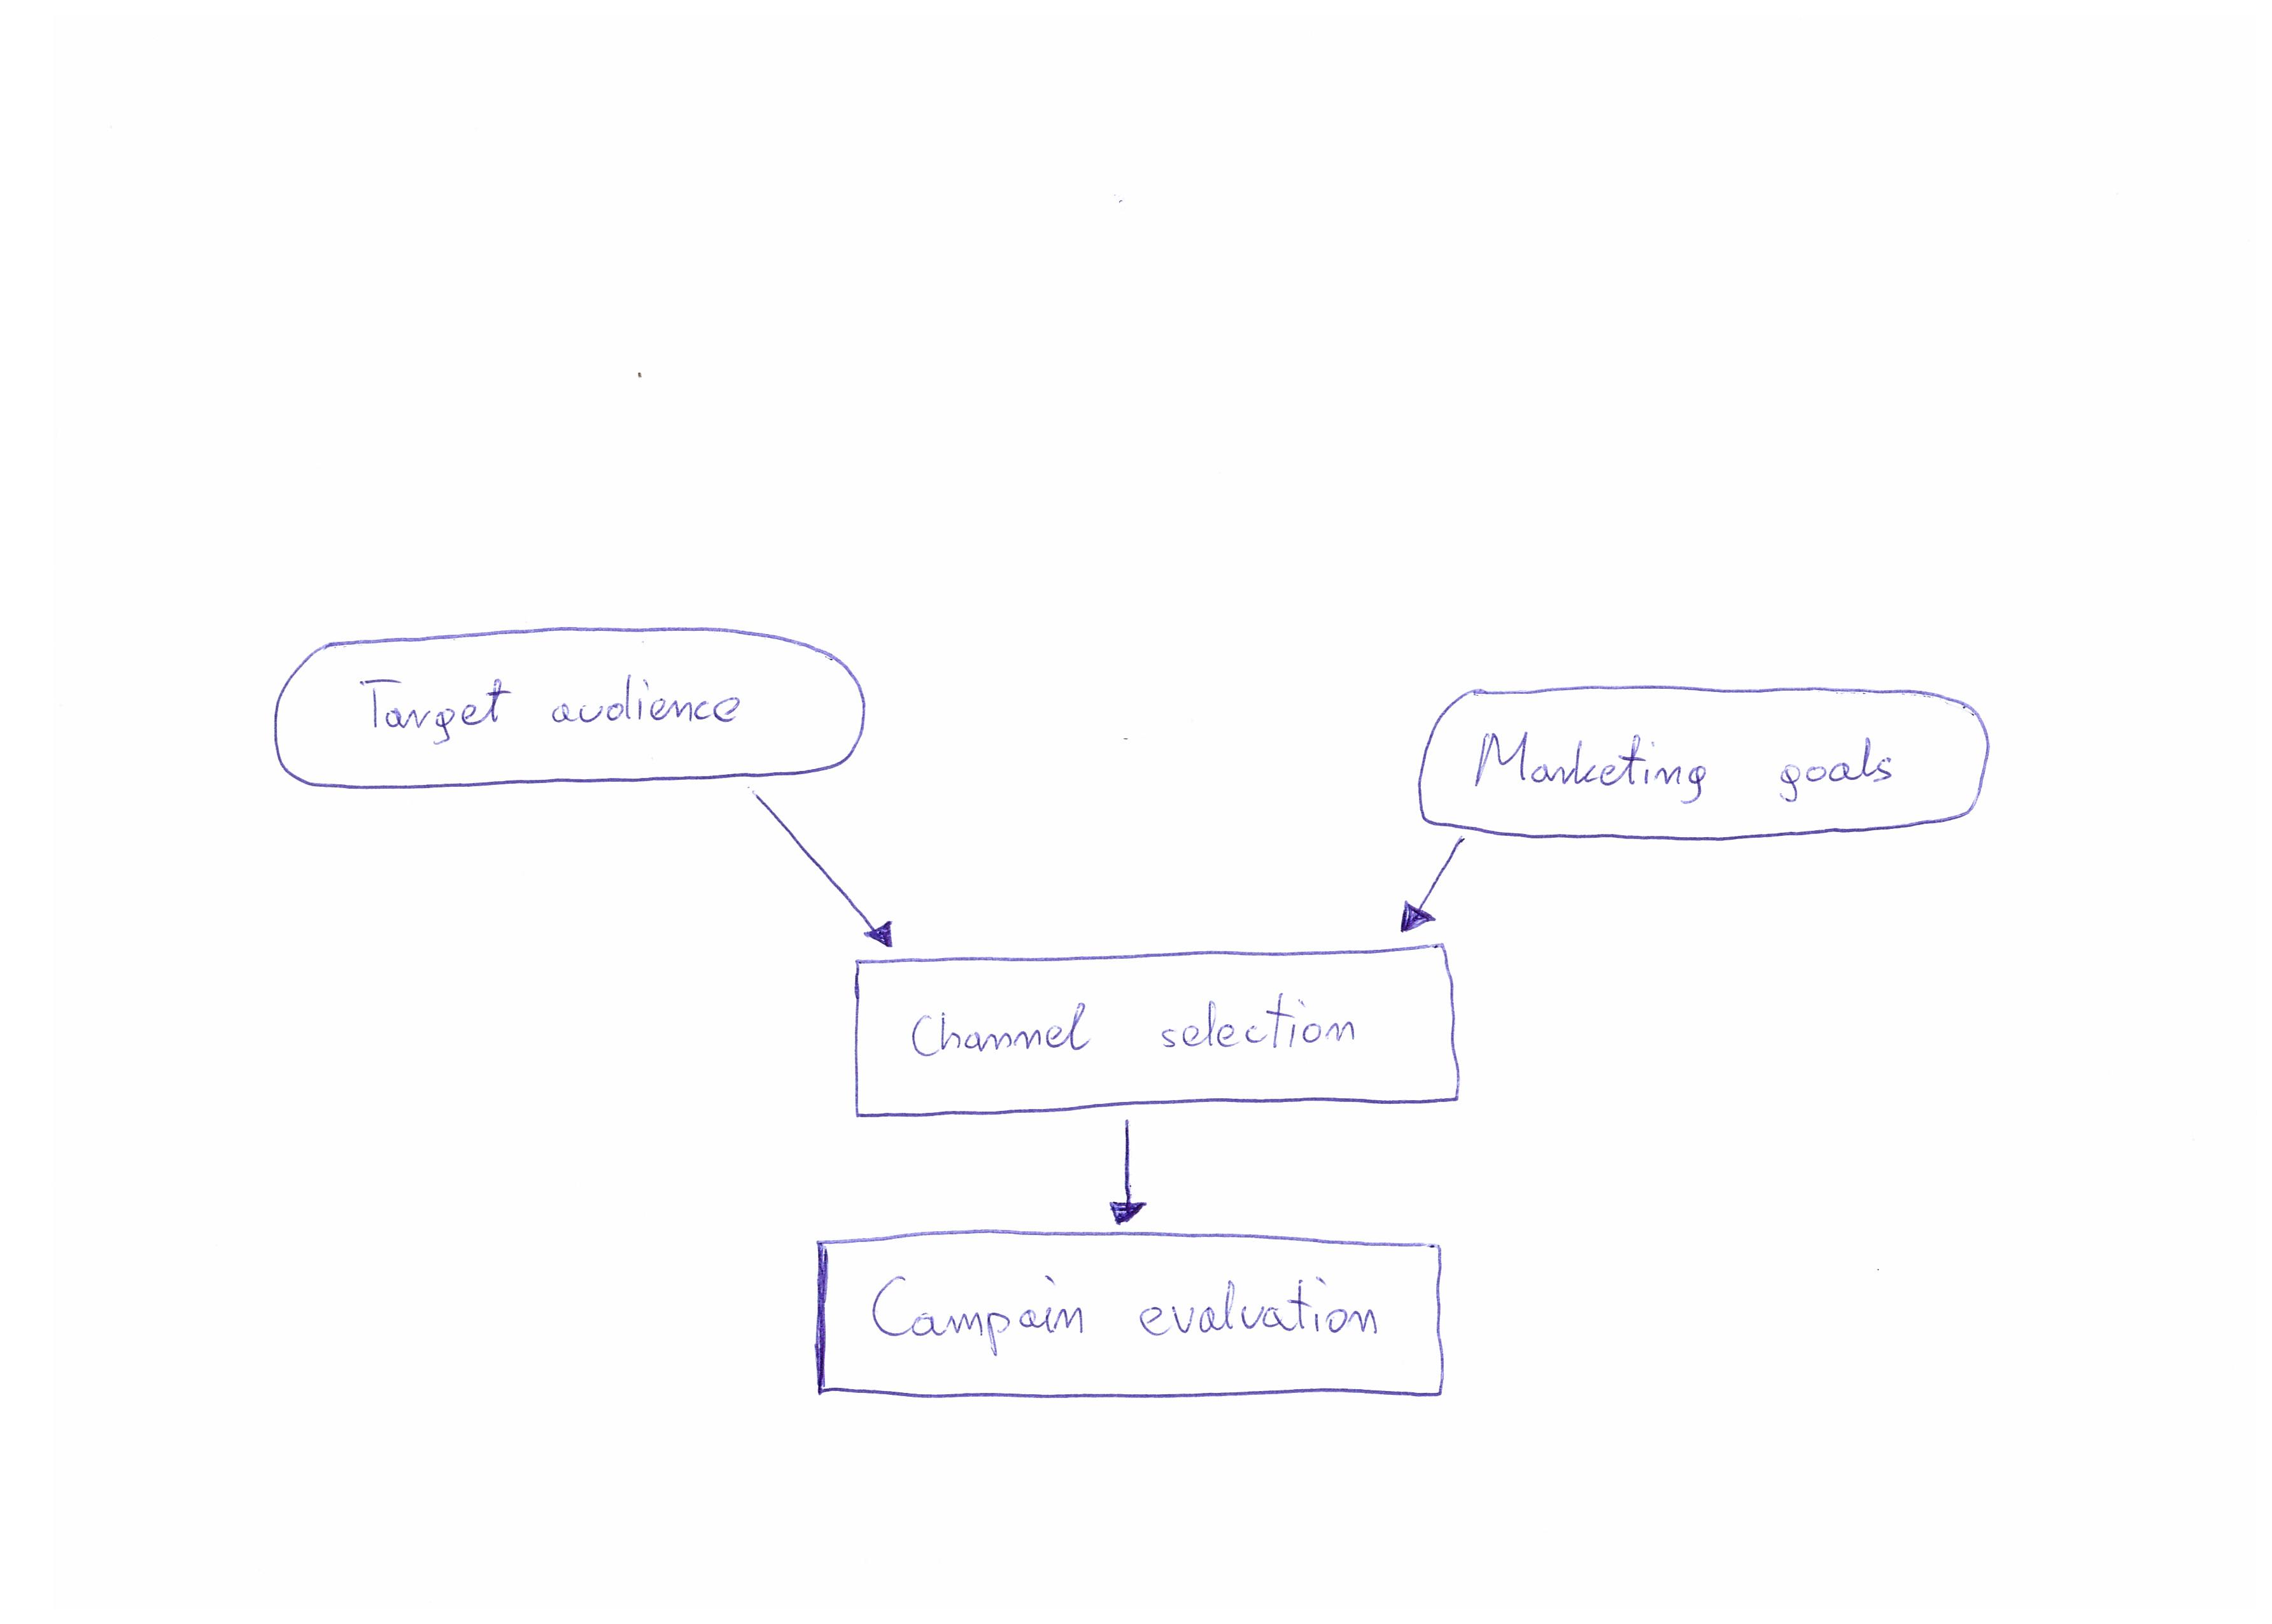 Target audience
Marketing goals
Channel selection
Campain evaluation